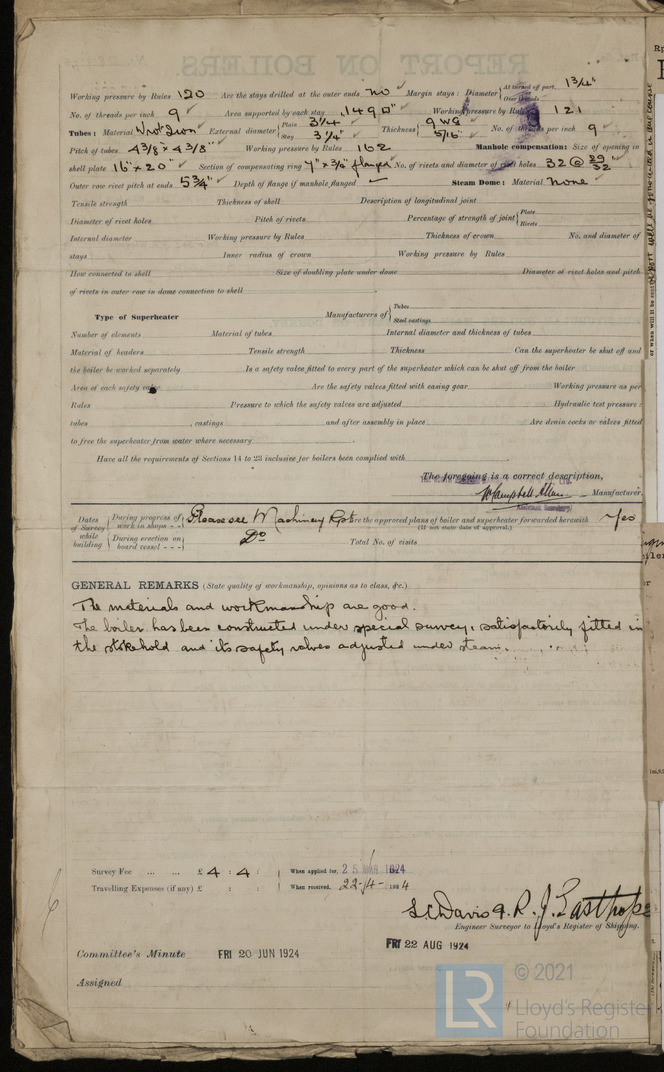 REPORT ON BOILERS
Working pressure by Rules 120 Are the stays drilled at the outer ends no Margin stays: Diameter { At turned off part, 1¾" Over threads
No. of threads per inch 9 Area supported by each stay 149□" Working pressure by Rules 121
Tubes: Material Wrot Iron External diameter { Plain 3¼ Stay 3¼" Thickness { 9 WG 5/16" No. of threads per inch 9
Pitch of tubes 4⅜ × 4⅜" Working pressure by Rules 162 Manhole compensation: Size of opening in
shell plate 16" × 20" Section of compensating ring 7" × ¾" flanged No. of rivets and diameter of rivet holes 32 @ 29/32"
Outer row rivet pitch at ends 5¾" Depth of flange if manhole flanged Steam Dome: Material none
Tensile strength Thickness of shell Description of longitudinal joint
Diameter of rivet holes Pitch of rivets Percentage of strength of joint { Plate Rivets
Internal diameter Working pressure by Rules Thickness of crown No. and diameter of
stays Inner radius of crown Working pressure by Rules
How connected to shell Size of doubling plate under dome Diameter of rivet holes and pitch
of rivets in outer row in dome connection to shell
Type of Superheater Manufacturers of { Tubes Steel castings
Number of elements Material of tubes Internal diameter and thickness of tubes
Material of headers Tensile strength Thickness Can the superheater be shut off and
the boiler be worked separately Is a safety valve fitted to every part of the superheater which can be shut off from the boiler
Area of each safety valve Are the safety valves fitted with easing gear Working pressure as per
Rules Pressure to which the safety valves are adjusted Hydraulic test pressure:
tubes , castings and after assembly in place Are drain cocks or valves fitted
to free the superheater from water where necessary
Have all the requirements of Sections 14 to 23 inclusive for boilers been complied with
The foregoing is a correct description,
W Campbell Allan Manufacturer.
Dates of Survey while building { During progress of work in shops - - Please see Machinery Rpt Are the approved plans of boiler and superheater forwarded herewith Yes
(If not state date of approval.)
During erection on board vessel - - - Do Total No. of visits
GENERAL REMARKS (State quality of workmanship, opinions as to class, &c.)
The materials and workmanship are good.
The boiler has been constructed under special survey, satisfactorily fitted in
the stokehold and its safety valves adjusted under steam.
Survey Fee ... ... £ 4 : 4 : When applied for, 25 MAR 1924
Travelling Expenses (if any) £ : : When received, 22-4-1924
L C Davis & R. J. Easthope
Engineer Surveyor to Lloyd's Register of Shipping.
Committee's Minute FRI 20 JUN 1924 FRI 22 AUG 1924
Assigned
LR © 2021
Lloyd's Register
Foundation